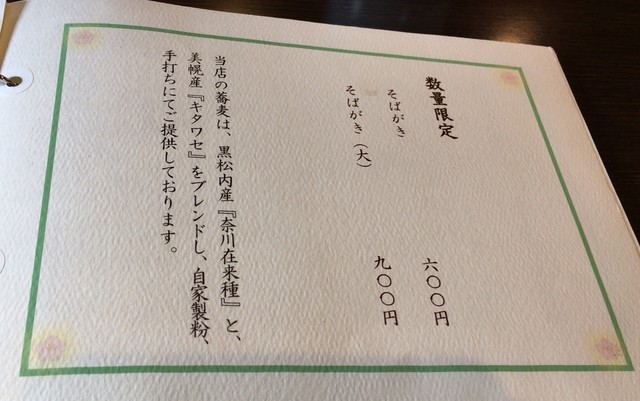 数量限定
そばがき 六〇〇円
そばがき（大） 九〇〇円
当店の蕎麦は、黒松内産『奈川在来種』と、
美幌産『キタワセ』をブレンドし、自家製粉、
手打ちにてご提供しております。